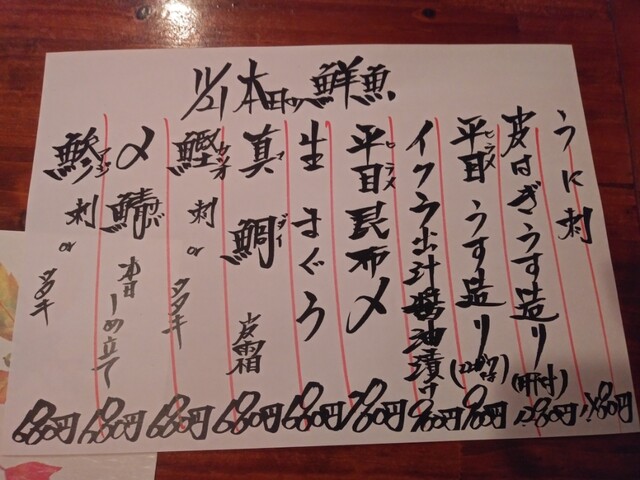 11/21 本日の鮮魚
うに刺 1,280円
皮はぎうす造り(肝付) 1,280円
平目ヒラメ うす造り 980円
イクラ出汁醤油漬け 980円
平目ヒラメ昆布〆 780円
生まぐろ 680円
真マ鯛ダイ 皮霜 680円
鰹カツオ 刺 or タタキ 680円
〆鯖サバ 本日しめ立て 680円
鯵アジ 刺 or タタキ 680円